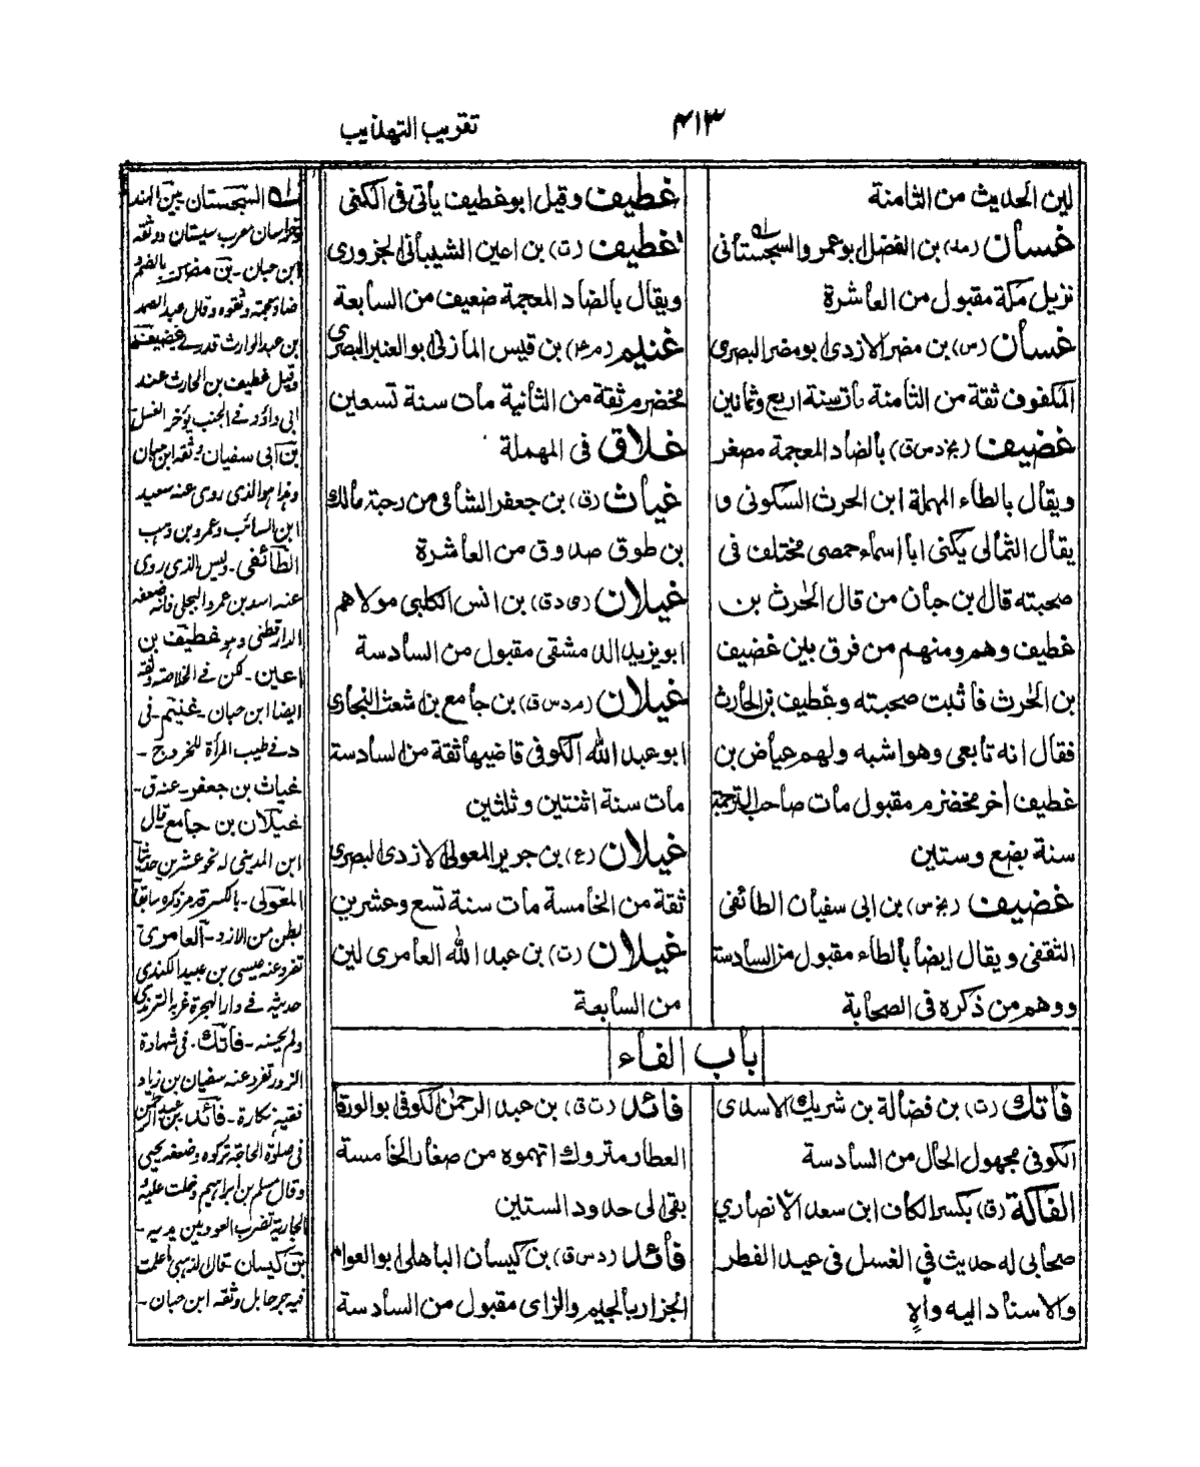 ٤١٣
تقريب التهذيب
لين الحديث من الثامنة
غسان (مد) بن الفضل ابوعمرو السجستانى
نزيل مكة مقبول من العاشرة
غسان (س) بن مضر الازدى ابومضر البصرى
المكفوف ثقة من الثامنة مات سنة اربع وثمانين
غضيف (بخ د س ق) بالضاد المعجمة مصغر
ويقال بالطاء المهملة ابن الحرث السكونى و
يقال الثمالى يكنى ابا اسماء حمصى مختلف فى
صحبته قال ابن حبان من قال الحرث بن
غطيف وهم ومنهم من فرق بين غضيف
بن الحرث فاثبت صحبته وغطيف بن الحارث
فقال انه تابعى وهو اشبه ولهم عياض بن
غطيف أخر مخضرم مقبول مات صاحب الترجمة
سنة بضع وستين
غضيف (بخ س) بن ابى سفيان الطائفى
الثقفى ويقال ايضا بالطاء مقبول من السادسة
ووهم من ذكره فى الصحابة
غطيف وقيل ابوغطيف يأتى فى الكنى
غطيف (ت) بن اعين الشيبانى الجزورى
ويقال بالضاد المعجمة ضعيف من السابعة
غنيم (م عم) بن قيس المازنى ابوالعنبر البصرى
مخضرم ثقة من الثانية مات سنة تسعين
غلاق فى المهملة
غياث (ق) بن جعفر الشامى من رحبة مالك
بن طوق صدوق من العاشرة
غيلان (ى د ق) بن انس الكلبى مولاهم
ابويزيد الدمشقى مقبول من السادسة
غيلان (م د س ق) بن جامع بن اشعث النجارى
ابوعبد الله الكوفى قاضيها ثقة من السادسة
مات سنة اثنتين وثلثين
غيلان (ع) بن جرير المعولى الازدى البصرى
ثقة من الخامسة مات سنة تسع وعشرين
غيلان (ت) بن عبد الله العامرى لين
من السابعة
باب الفاء
فاتك (ت) بن فضالة بن شريك الاسدى
الكوفى مجهول الحال من السادسة
الفاكة (ق) بكسر الكاف ابن سعد الانصاري
صحابى له حديث في الغسل فى عيد الفطر
والاسناد اليه واهٍ
فائد (ت ق) بن عبد الرحمن الكوفى ابوالورقا
العطار متروك اتهموه من صغار الخامسة
بقى الى حدود الستين
فائد (د س ق) بن كيسان الباهلى ابوالعوام
الجزار بالجيم والزاى مقبول من السادسة
له السجستان بين الهند
وخراسان معرب سيستان ووثقه
ابن حبان ـ بن مضر بالضم و
ضاد معجمة وثقوه وقال عبد الصمد
بن عبد الوارث قدرے غضيف
وقيل غطيف بن الحارث عند
ابى داؤد فے الجنب يؤخر الغسل
بن ابى سفيان وثقه ابن حبان
وهذا هو الذى روى عنه سعيد
ابن السائب وعمرو بن وهب
الطائفى ـ وليس الذى روى
عنه اسد بن عمرو البجلى فانه ضعفه
الدارقطنى وهو غطيف بن
اعين ـ لكن فے الخلاصة وثقه
ايضا ابن حبان ـ غنيم ـ فى
د فے طيب المرأة للخروج ـ
غياث بن جعفر ـ عنه ق ـ
غيلان بن جامع قال
ابن المدينى له نحو عشرين حديثا
المعولى ـ بالكسر قد مر ذكره سابقا
بطن من الازد ـ العامرى
تفرد عنه عيسى بن عبيد الكندى
حديثه فے دار الهجرة غربه الترمذى
ولم يحسنه ـ فاتك ـ فى شهادة
الزور تفرد عنه سفيان بن زياد
ففيه نكارة ـ فائد بن عبد الرحمن
فى صلوة الحاجة تركوه وضعفه يحيى
وقال مسلم بن ابراهيم دخلت عليه و
الجارية تضرب العود بين يديه ـ
بن كيسان ـ قال الذهبى ما علمت
فيه جرحا بل وثقه ابن حبان ـ